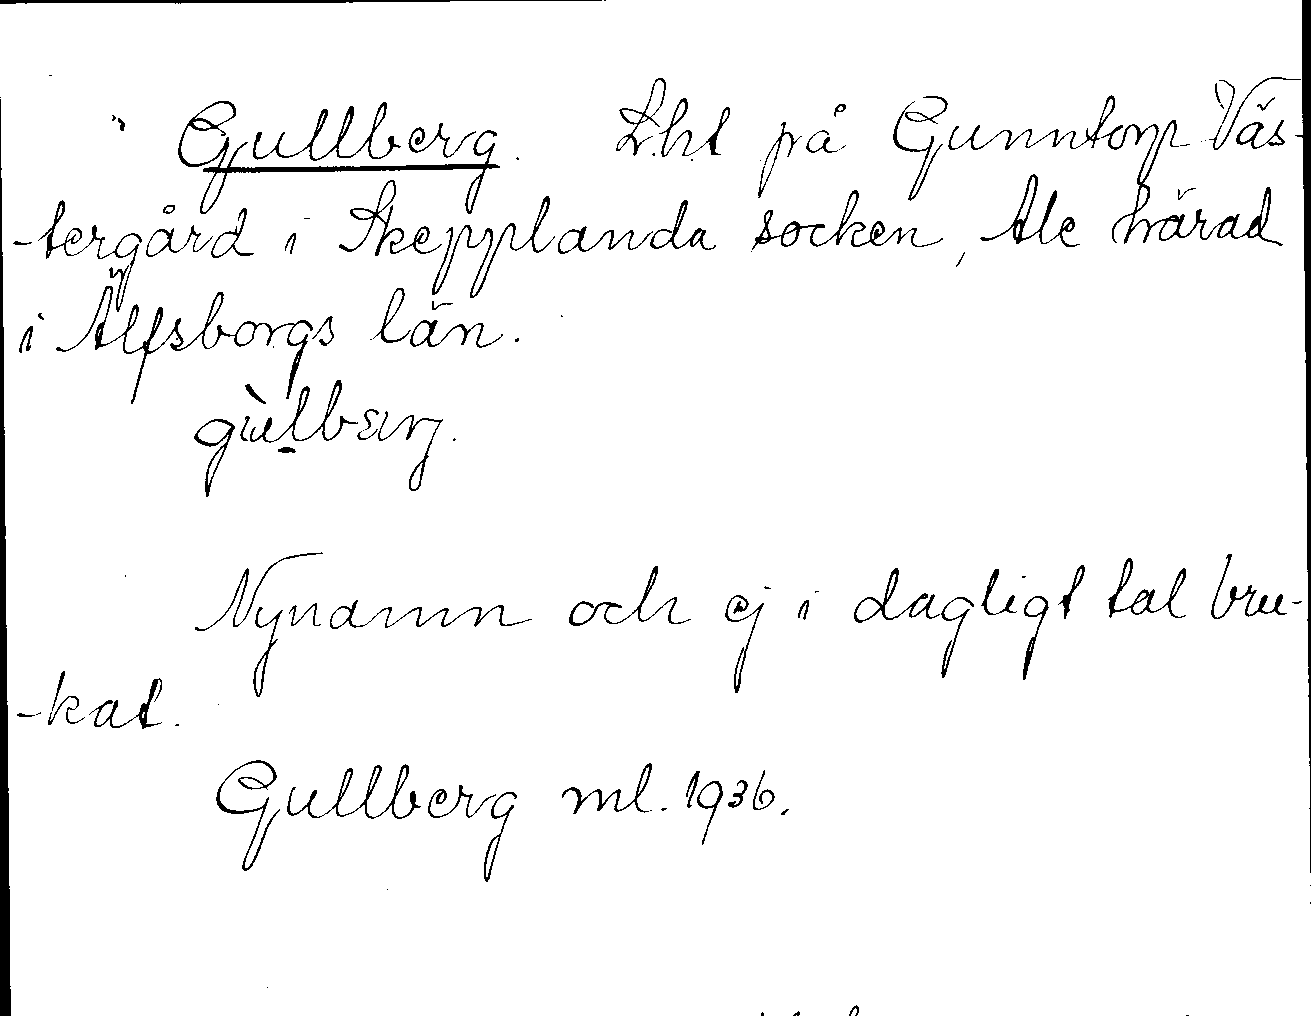 " Gullberg. Lht på Gunntorp Väs-
-tergård i Skepplanda socken, Ale härad
i Älfsborgs län.
gùlbærj.
Nynamn och ej i dagligt tal bru-
-kat.
Gullberg ml. 1936.